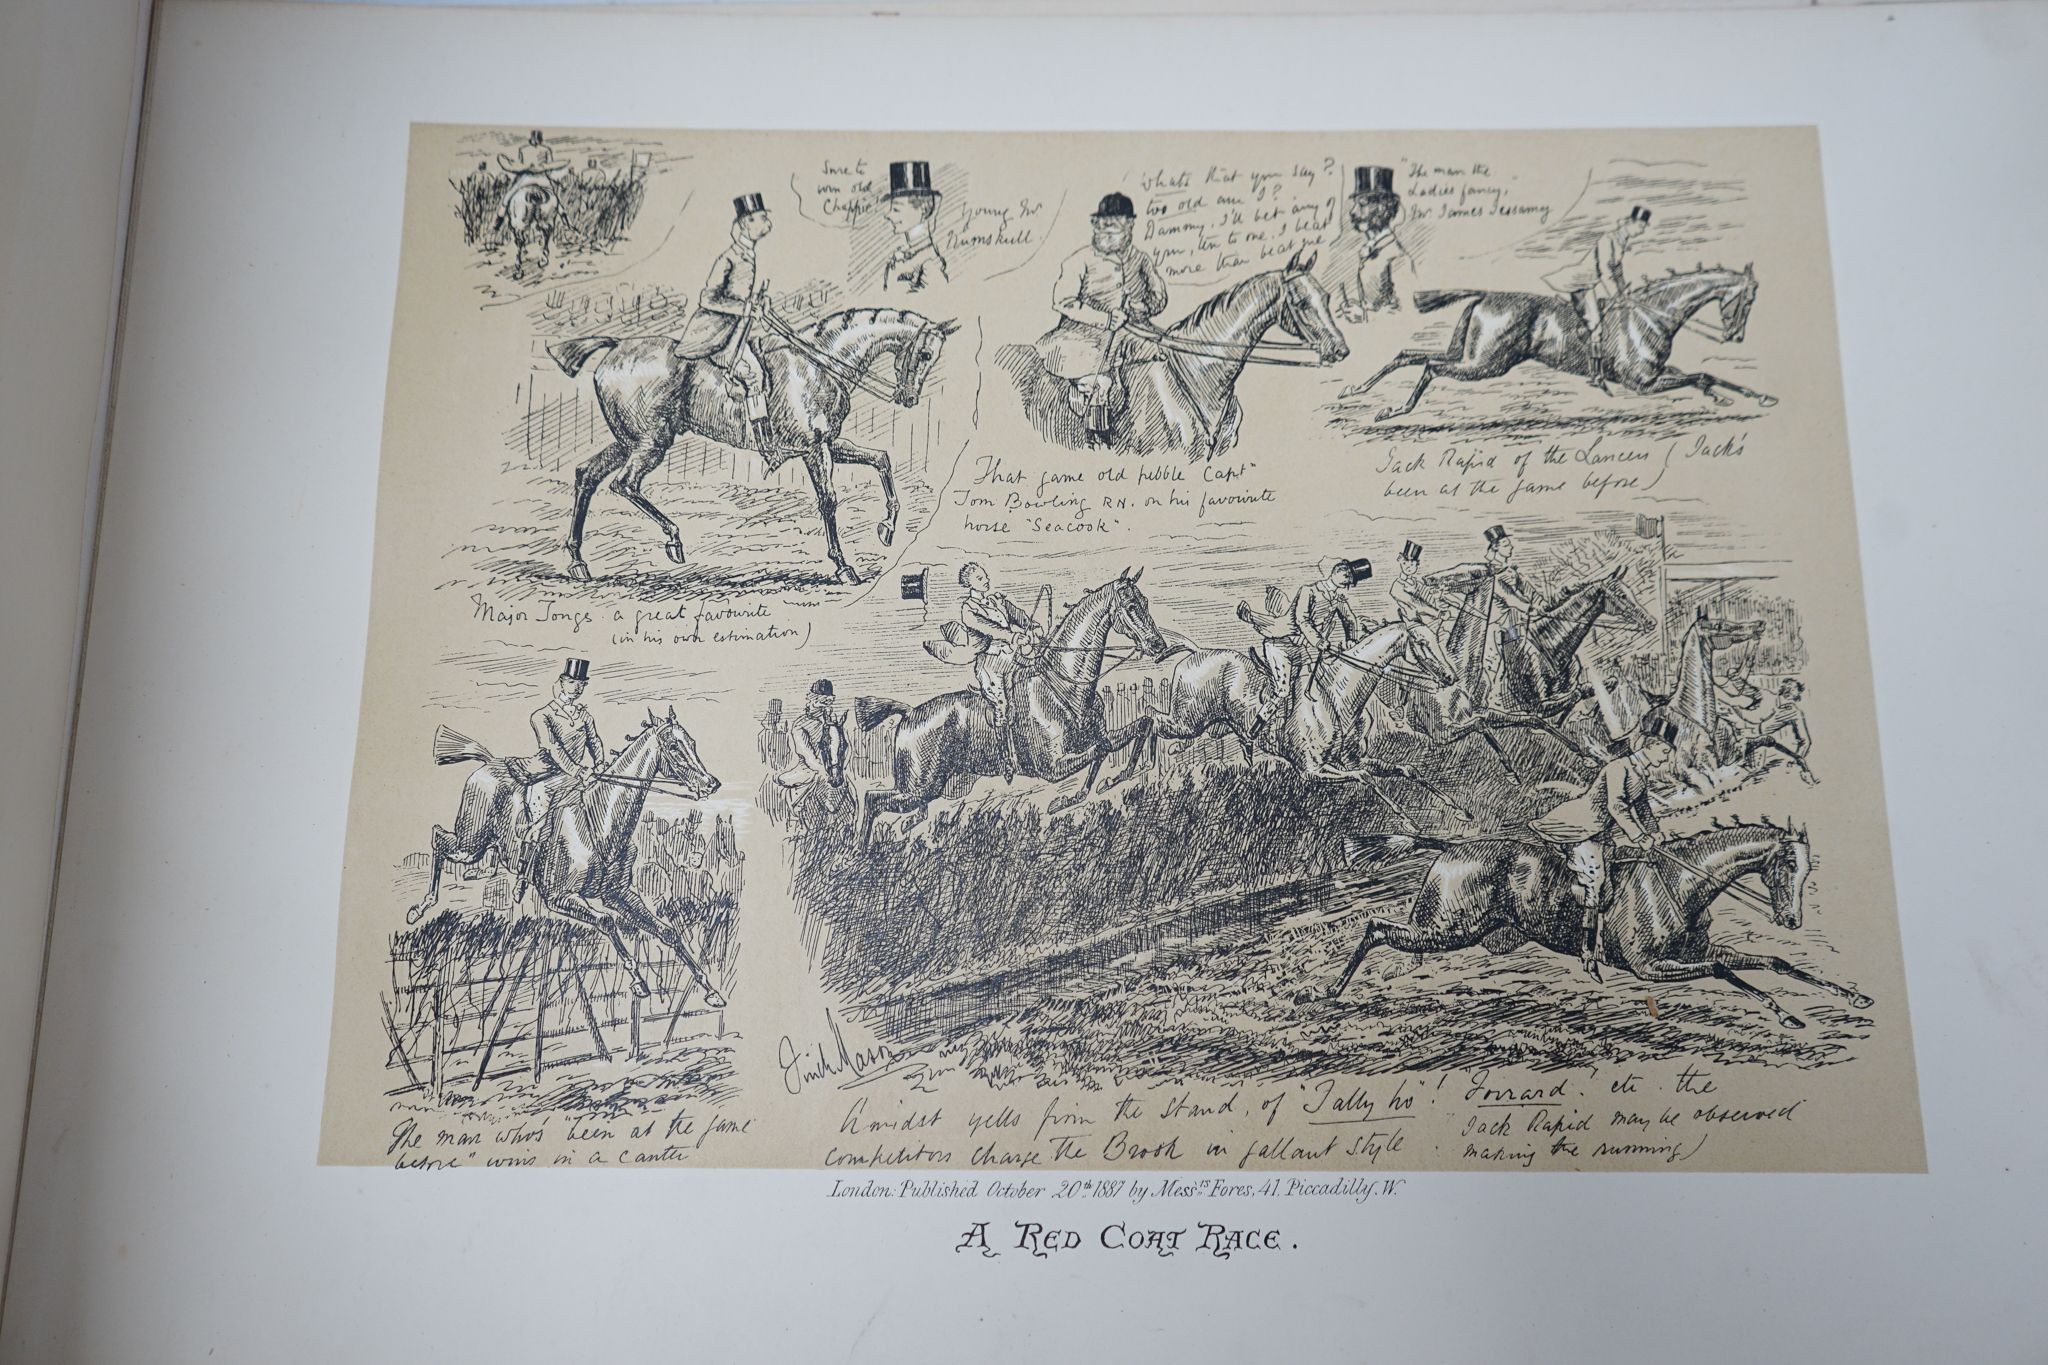 Sure to
win old
Chappie!
Young Mr
Numskull.
Whats that you say?
too old am I?
Dammy, I'll bet any of
you, ten to one. I beat
more than beat me
"The man the
Ladies fancy,
Mr. James Jessamy
That game old pebble Capt"
Tom Bowling RN. on his favourite
horse "Seacook".
Jack Rapid of the Lancers (Jack's
been at the game before)
Major Tongs a great favourite
(in his own estimation)
Finch Mason
The man who's "been at the game
before" wins in a canter
Amidst yells from the Stand, of "Tally ho"! Forrard! etc. the
competitors charge the Brook in gallant style
Jack Rapid may be observed
making the running)
London: Published October 20th 1887 by Messrs Fores, 41. Piccadilly. W.
A RED COAT RACE.